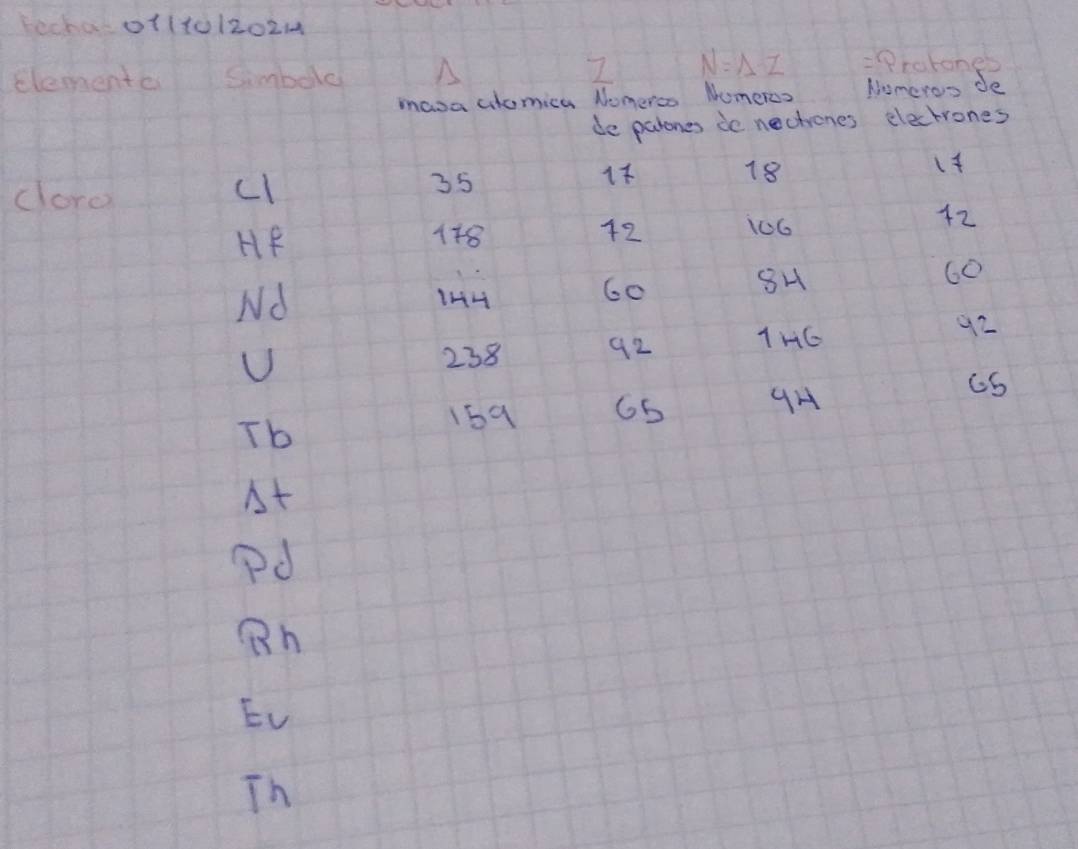 Fecha: 01/10/2024
Elemento Simbolo A Z N=A-Z =Protones
masa atomica Numeros Numeros Numeros de
de patones de neutrones electrones
Cloro Cl 35 17 18 17
Hf 178 72 106 72
Nd 144 60 84 60
U 238 92 146 92
Tb 159 65 94 65
At
Pd
Rh
Eu
Th